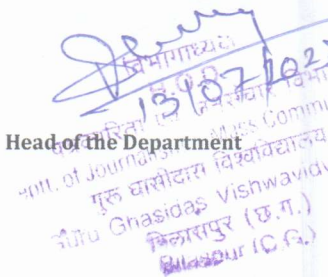 विभागाध्यक्ष
13/07/202
Head of the Department
पत्रकारिता एवं जनसंचार विभा
of Journalism Mass Commu
गुरू घासीदास विश्वविद्यालय
Guru Ghasidas Vishwavidya
बिलासपुर (छ.ग.)
Bilaspur (C.G.)